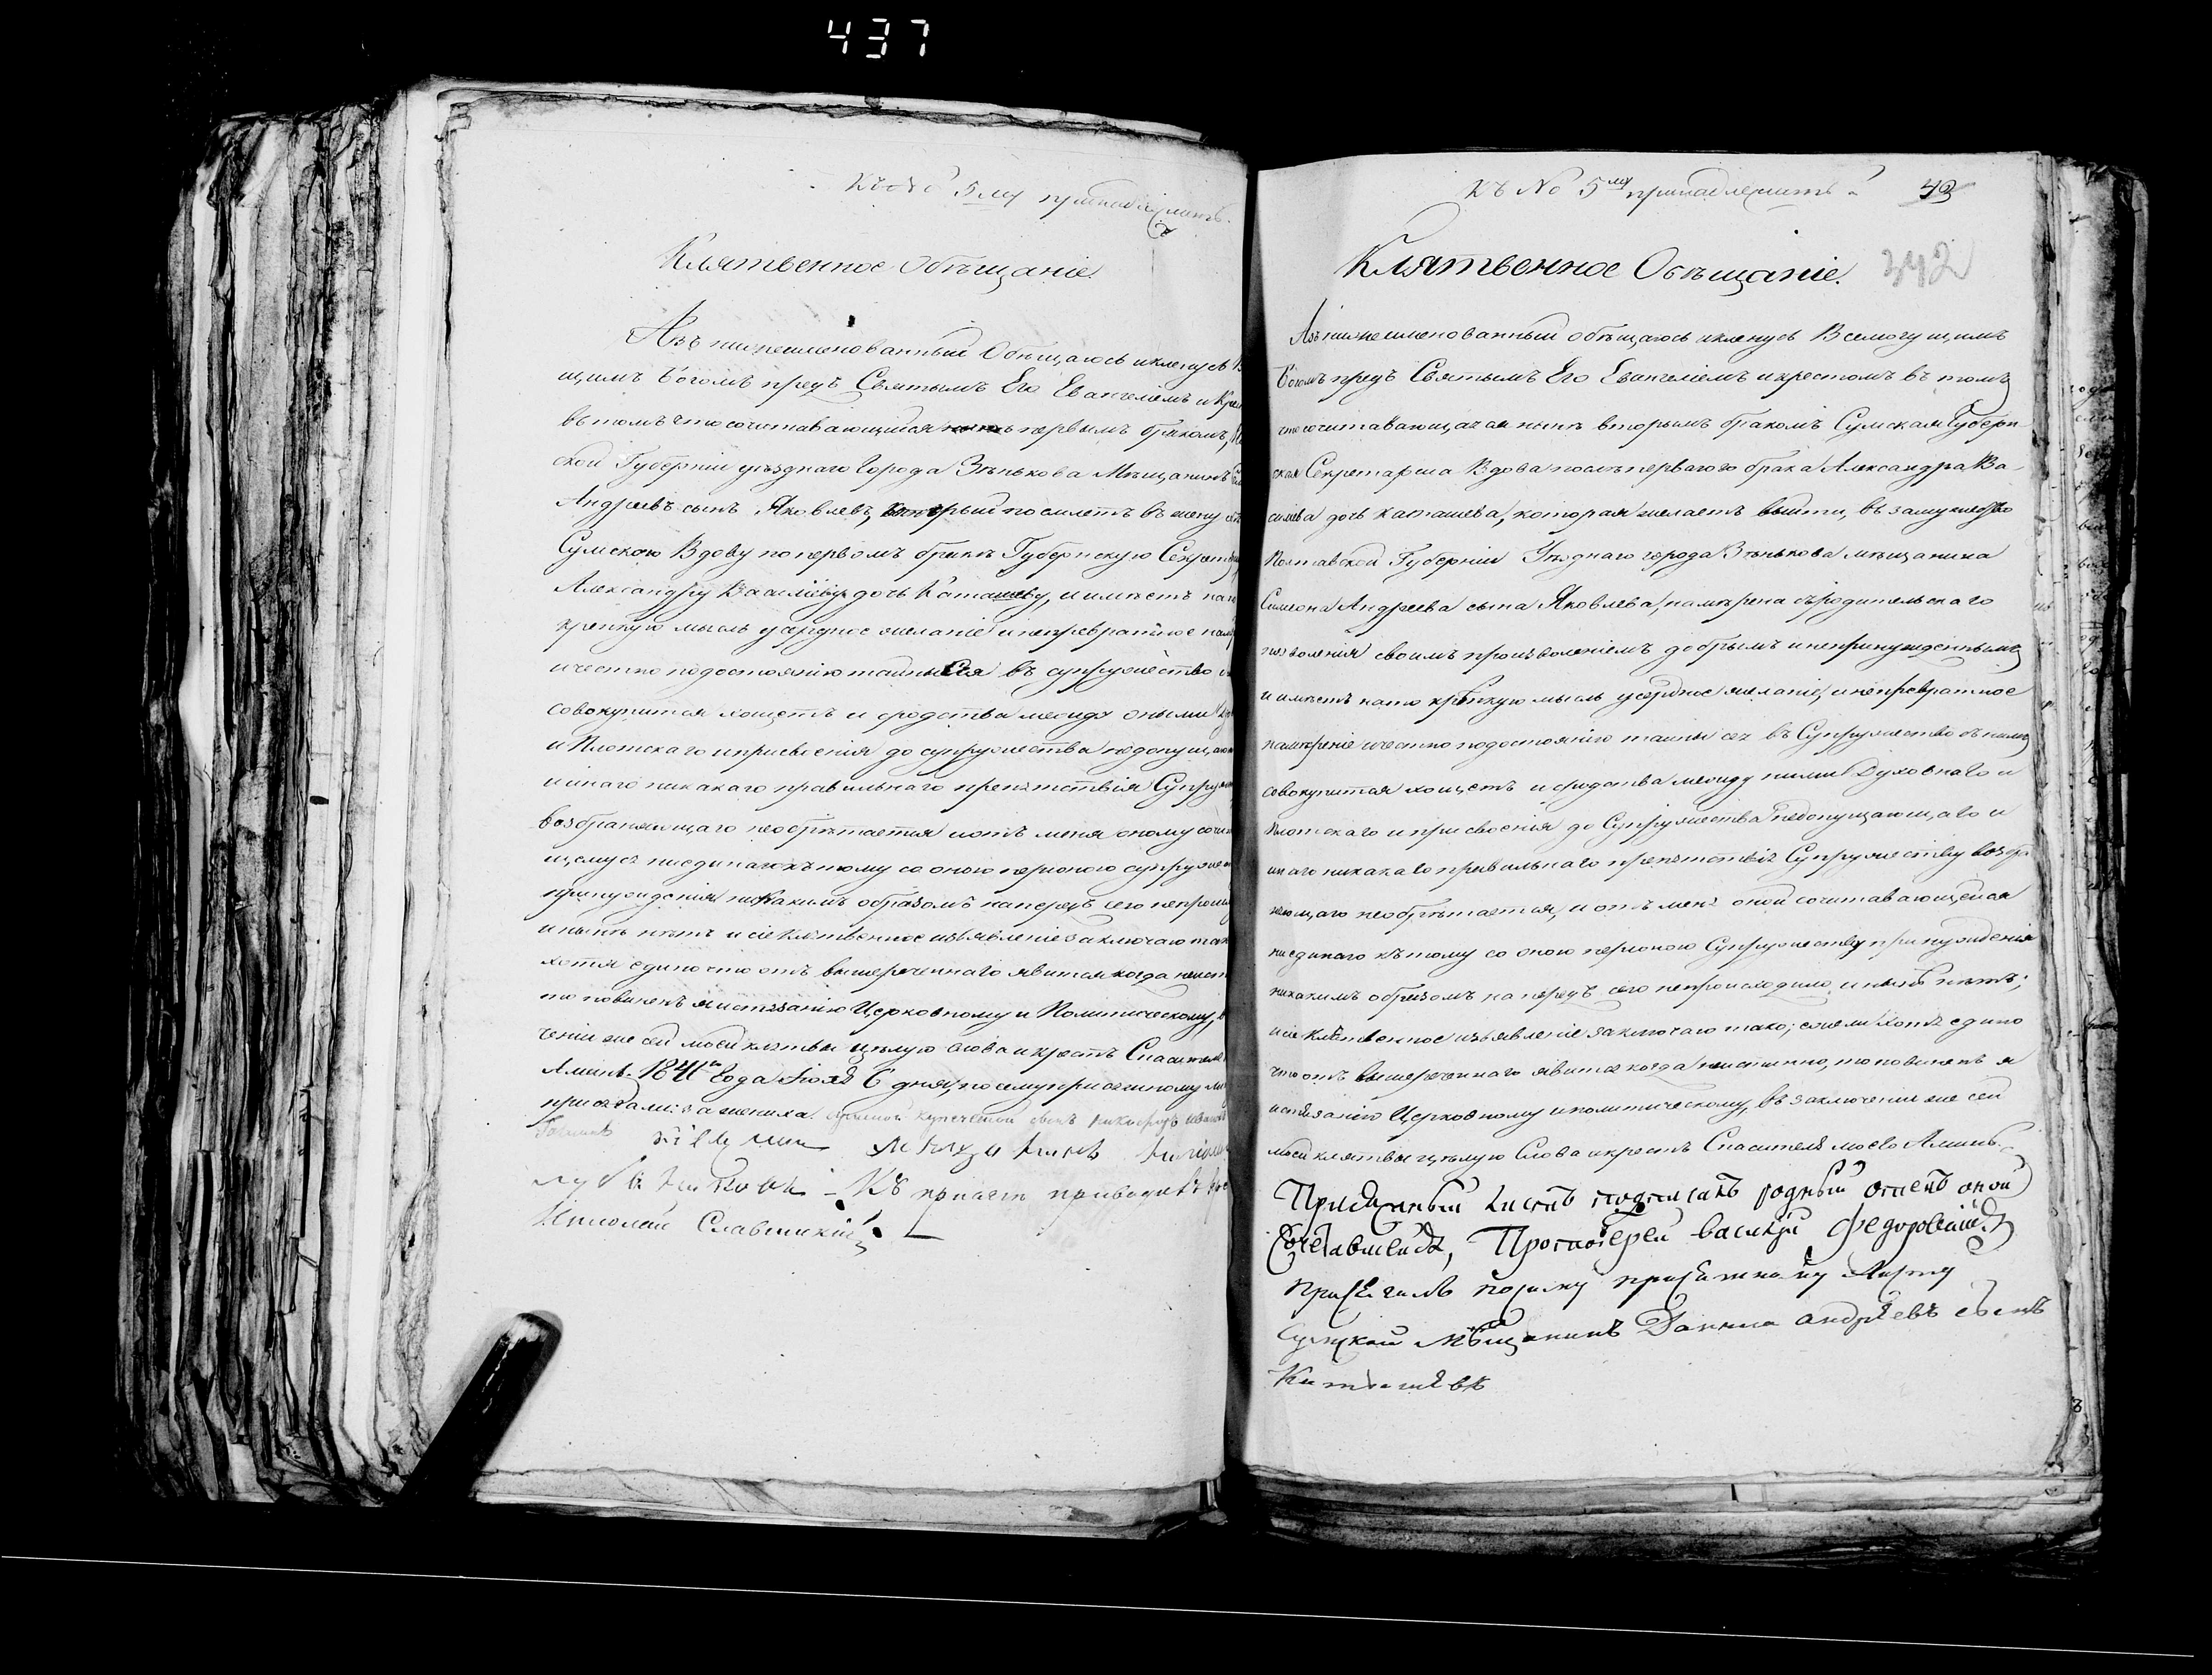 437
Къ № 5му принадлежитъ.
Клятвенное Обѣщаніе
Азъ нижеименованный Обѣщаюсь и кленусь В
щимъ Богомъ предъ Святымъ Его Евангеліемъ и Крес
въ томъ что сочитавающийся первымъ бракомъ,
ской Губерніи уѣзднаго Города Зѣнькова Мѣщанинъ
Андреевъ сынъ Яковлевъ, который поемлетъ въ жену
Сумскою Вдову по первомъ бракѣ Губернскую Секрет
Александру Василіеву дочь Каташеву, и имѣетъ на
крепкую мысль усердное желаніе и непревратное нам
и честно по достоянію тайны Сея въ супружество
совокупится хощетъ и сродства между оными
и Плотскаго и присвоенія до супружества недопущаю
и инаго никакаго правильнаго препятствія Супру
возбраняющаго необрѣтается и отъ меня оному сочи
щемуся ниединаго къ тому со оною персоною супруже
принужденія никакимъ образомъ напередъ сего непроиз
и нынѣ нѣтъ и сіе Клятвенное изъявленіе заключаю так
хотя едино что отъ вышереченнаго явится когда неист
то повиненъ я истязанію Церковному и Политическому,
ченіи же сей моей клятвы цѣлую слова и крестъ Спасителя
Аминь. 1841го Года Іюля 6 дня, по сему присяжному ли
присягали: за жениха купеческой сынъ Никифоръ
мѣщанинъ
Къ присягѣ приводилъ
Николай Славинскій
Къ № 5му принадлежитъ
43
342
Клятвенное Обѣщаніе.
Азъ нижеименованный обѣщаюсь и кленусь Всемогущимъ
Богомъ предъ Святымъ Его Евангеліемъ и крестомъ въ томъ
что сочитавающаяся нынѣ вторымъ бракомъ Сумская Губерн
ская Секретарша Вдова послѣ перваго брака Александра Ва-
силіева дочь Каташева, которая желаетъ выйти, въ замужество
Полтавской Губерніи Уѣзднаго города Зѣнькова мѣщанина
Симеона Андреева сына Яковлева, намѣрена съ родительскаго
позволенія своимъ произволеніемъ добрымъ и непринужденнымъ
и имѣетъ на то крѣпкую мысль усердное желаніе, и непревратное
намѣреніе и честно по достоянію тайны сея въ Супружество съ нимъ
совокупится хощетъ и сродства между ними Духовнаго и
плотскаго и присвоенія до Супружества недопущающаго и
инаго никакаго правильнаго препятствія Супружеству возбра
няющаго необрѣтается, и отъ меня оной сочитавающейся
ниединаго къ тому со оною персоною Супружеству принужденія
никакимъ образомъ напередъ сего непроисходило, и нынѣ нѣтъ;
и сіе клятвенное изъявленіе заключаю тако; ежели хотя едино
что отъ вышереченнаго явится когда неистинно, то повиненъ я
истязанію Церковному и политическому, въ заключеніи же сей
моей клятвы цѣлую Слова и крестъ Спасителя моего Аминь.
Присяжный листъ подписалъ родный отецъ оной
Протоіерей Василій
Присягалъ по сему присяжному Листу
Сумской мѣщанинъ Данила андреевъ сынъ
Каташевъ